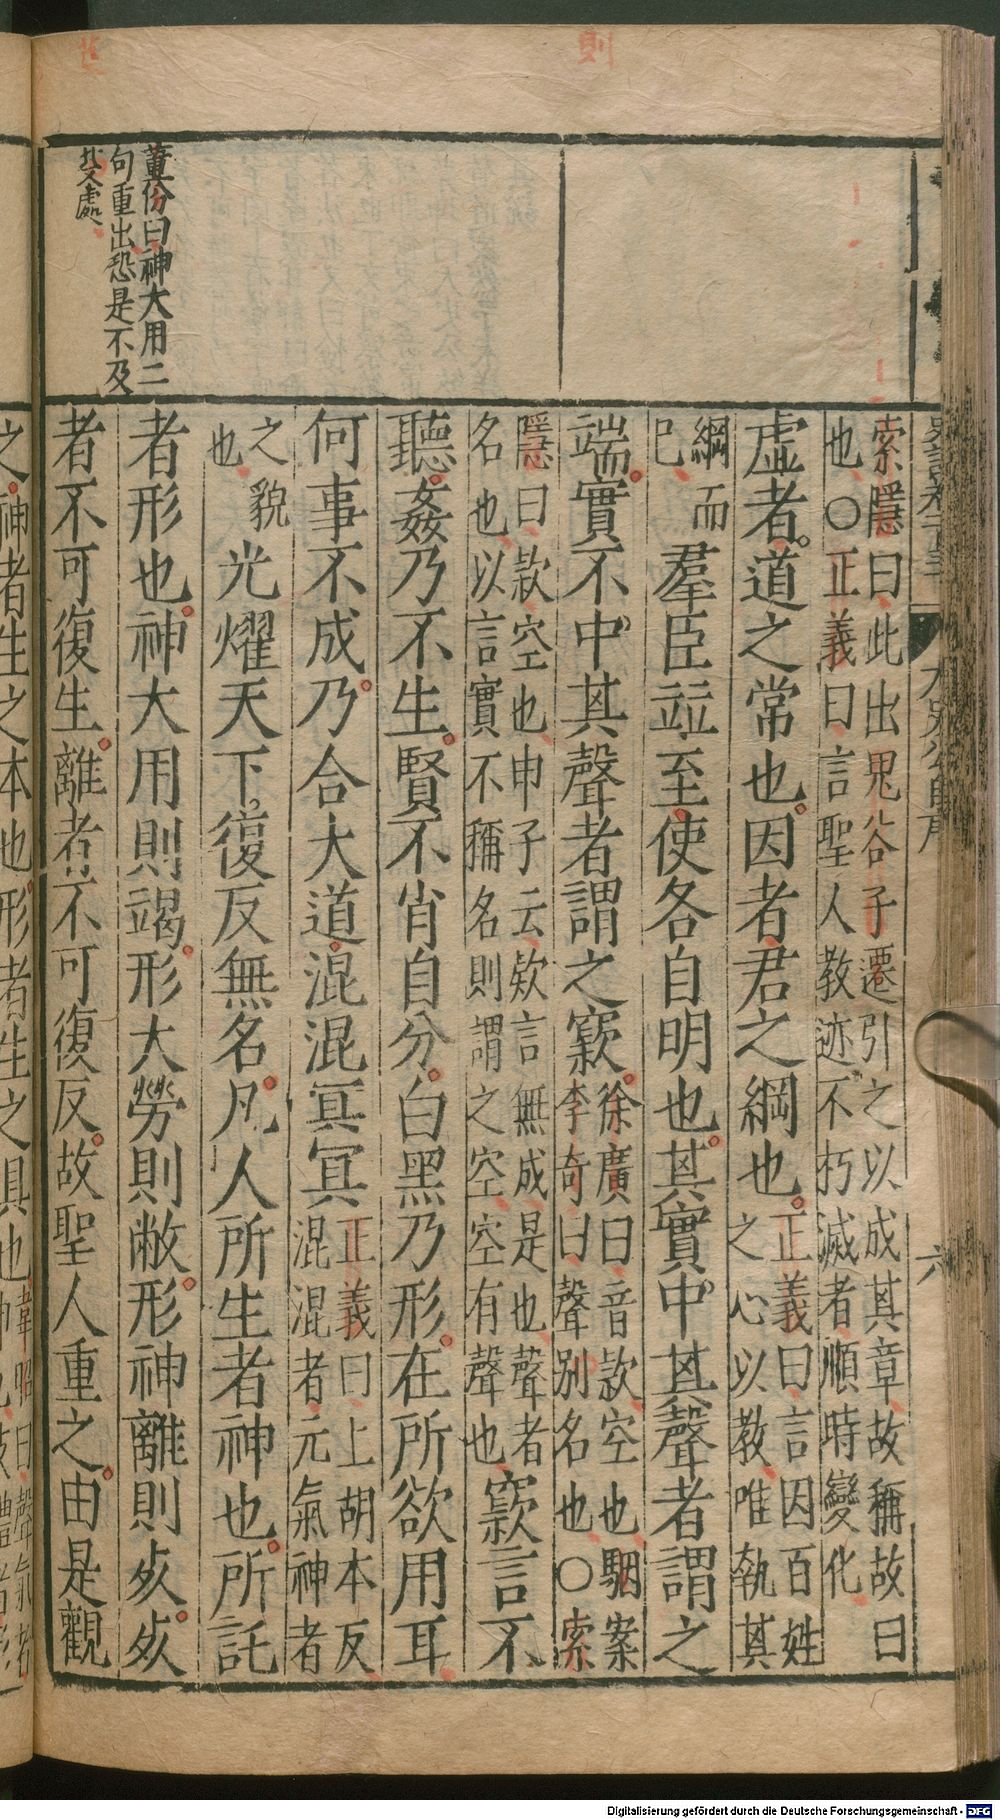 則
董份曰神大用二
句重出恐是不及
處
史記卷一百三十 太史公自序 六
索隱曰此出鬼谷子遷引之以成其章故稱故曰
也○正義曰言聖人教迹不朽滅者順時變化
虛者道之常也因者君之綱也正義曰言因百姓
之心以教唯執其
綱而
已羣臣竝至使各自明也其實中其聲者謂之
端實不中其聲者謂之窾徐廣曰音款空也駰案
李奇曰聲別名也○索
隱曰款空也申子云款言無成是也聲者
名也以言實不稱名則謂之空空有聲也窾言不
聽姦乃不生賢不肖自分白黑乃形在所欲用耳
何事不成乃合大道混混冥冥正義曰上胡本反
混混者元氣神者
之貌
也光燿天下復反無名凡人所生者神也所託
者形也神大用則竭形大勞則敝形神離則死死
者不可復生離者不可復反故聖人重之由是觀
之神者生之本也形者生之具也韋昭曰聲氣者
Digitalisierung gefördert durch die Deutsche Forschungsgemeinschaft - DFG